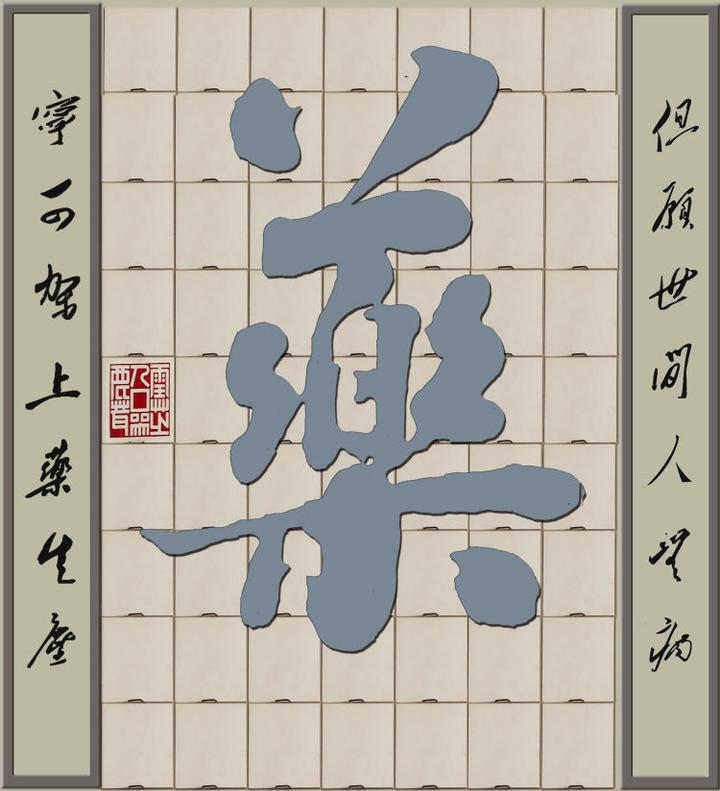 但願世間人無病
藥
寧可架上藥生塵